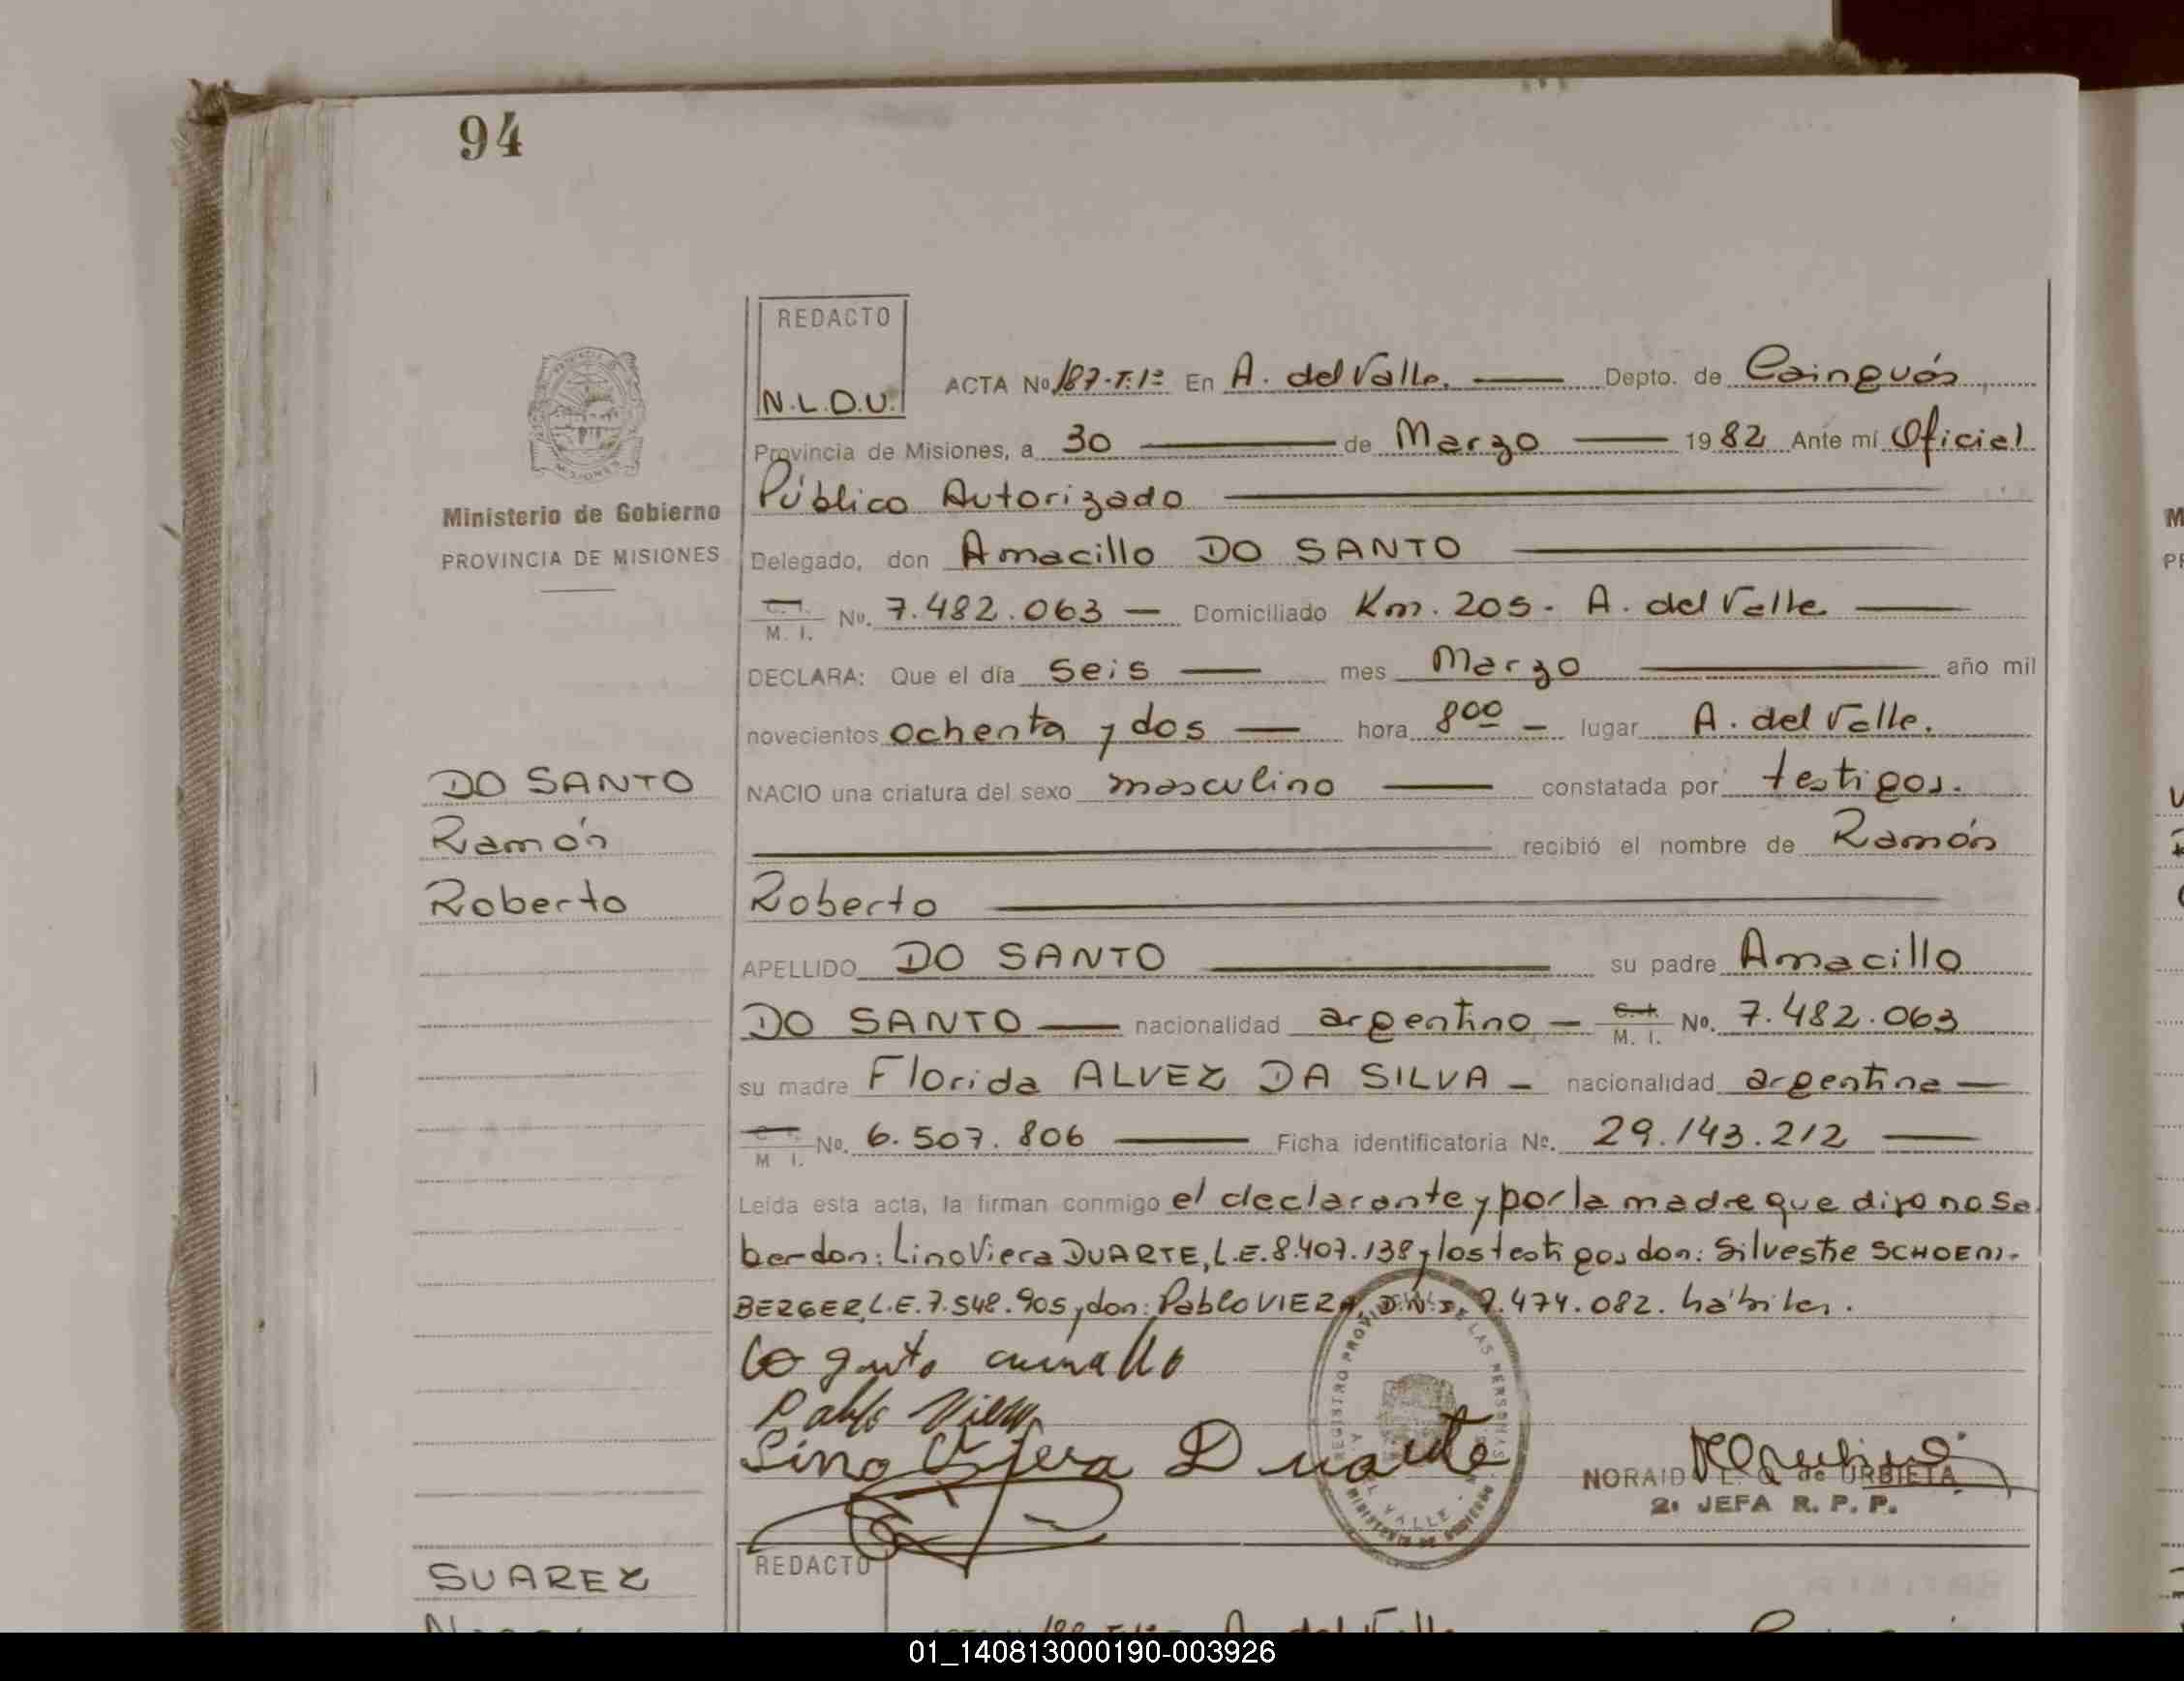 94
REDACTO
N.L.D.U.
ACTA No. 187-T.1º En A. del Valle. Depto. de Cainguás
Provincia de Misiones, a 30 de Marzo 1982 Ante mí Oficial
Público Autorizado
Ministerio de Gobierno
PROVINCIA DE MISIONES
Delegado, don Amacillo DO SANTO
C. I. M. I. No. 7.482.063 Domiciliado Km. 205 - A. del Valle
DECLARA: Que el día seis mes Marzo año mil
novecientos ochenta y dos hora 8 00 lugar A. del Valle.
DO SANTO
Ramón
Roberto
NACIO una criatura del sexo masculino constatada por testigos.
recibió el nombre de Ramón
Roberto
APELLIDO DO SANTO su padre Amacillo
DO SANTO nacionalidad argentino C. I. M. I. No. 7.482.063
su madre Florida ALVEZ DA SILVA nacionalidad argentina
C. I. M I. No. 6.507.806 Ficha identificatoria No. 29.143.212
Leída esta acta, la firman conmigo el declarante y por la madre que dijo no sa
ber don: Lino Viera DUARTE, L.E. 8.407.138 y los testigos don: Silvestre SCHOEN-
BERGER, L.E. 7.548.905 y don: Pablo VIERA, D.N.I. 7.474.082. hábiles.
Pablo Viera
Lino Viera Duarte
REGISTRO PROVINCIAL DE LAS PERSONAS
VALLE
MINISTERIO DE GOBIERNO
NORAID L. Q. de URBIETA
2ª JEFA R. P. P.
SUAREZ
REDACTO
01_140813000190-003926